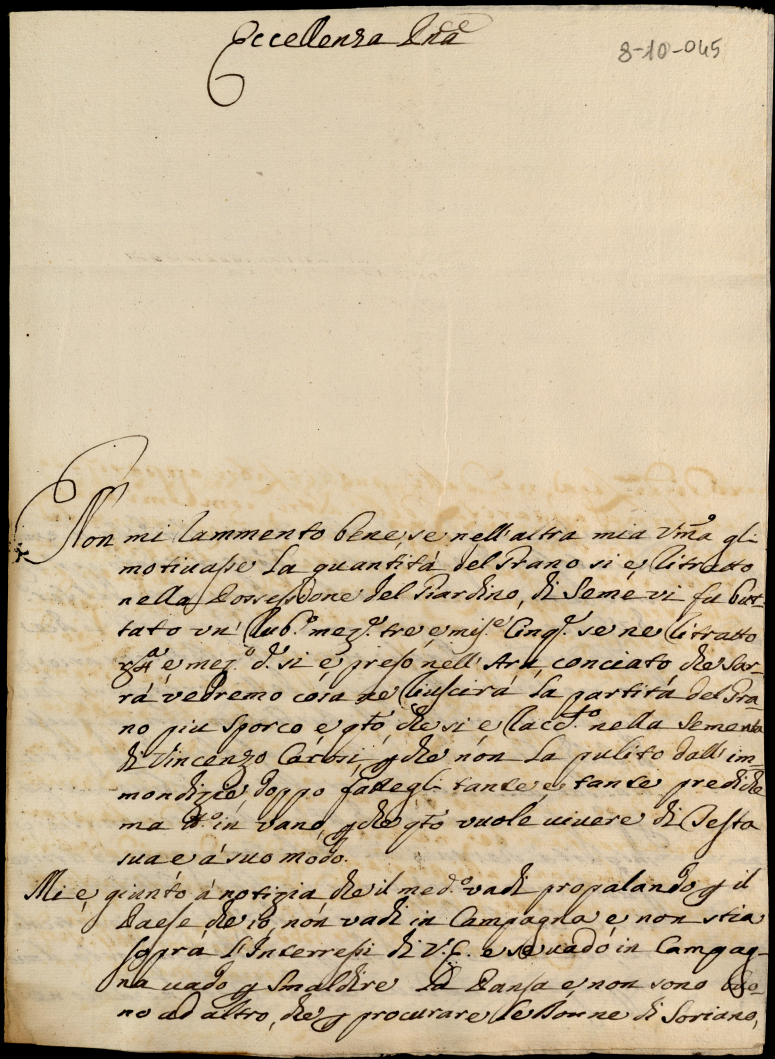 Eccellenza Pna
8-10-045
Non mi lammento bene se nell'altra mia Vma gli
motivasse La quantità del Grano si è Ritratto
nella Possessione del Giardino, di Seme vi fu but-
tato un' Rub.o mez.o tre e mis.e Cinq.e se ne Ritratto
è mez.o d. si è preso nell'Ara, conciato che sar-
rà vedremo cosa ne Riuscirà La partita del Gra-
no piu sporco e qto, che si e Racc.to nella Sementa
di Vincenzo Carosi, p che non La pulito dall'im-
mondizie doppo fattegli tante, e tante prediche
ma in vano, p che qto vuole vivere di Testa
sua e á suo modo.
Mi è giunto à notizia che il med.o vadi propalando p il
Paese che io, non vadi in Campagna e non stia
sopra L'Interressi di V.E. e se vado in Campag-
na vado p Smaldire La Pansa e non sono buo-
no ad altro, che p procurare Le Donne di Soriano,